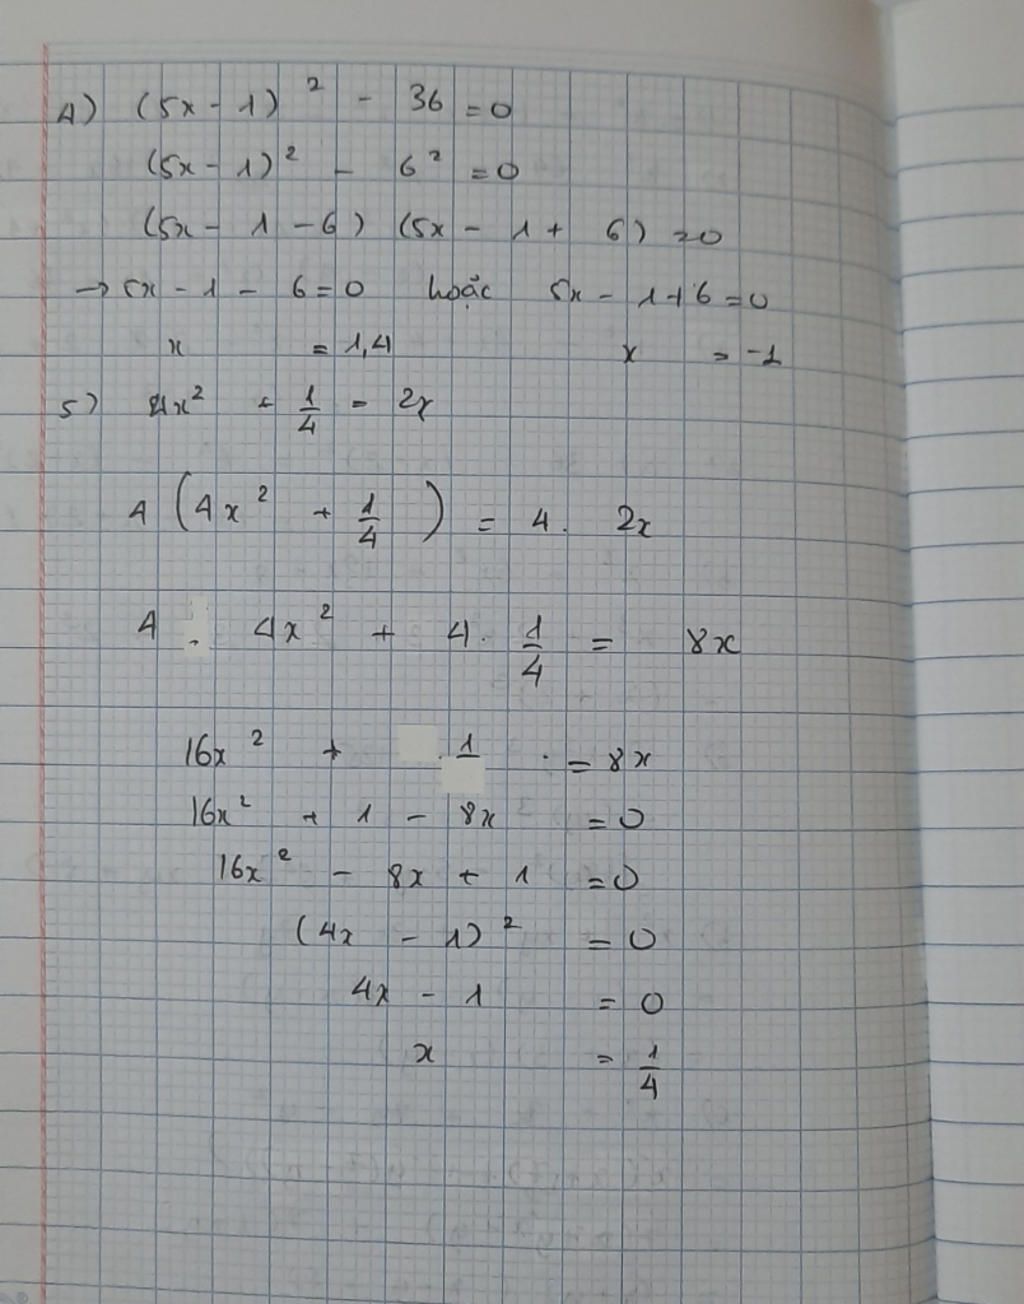 4) (5x - 1)² - 36 = 0
(5x - 1)² - 6² = 0
(5x - 1 - 6) (5x - 1 + 6) = 0
→ 5x - 1 - 6 = 0 hoặc 5x - 1 + 6 = 0
x = 1,4 x = -1
5) 4x² + 1/4 = 2x
4 (4x² + 1/4) = 4 . 2x
4 . 4x² + 4 . 1/4 = 8x
16x² + 1 = 8x
16x² + 1 - 8x = 0
16x² - 8x + 1 = 0
(4x - 1)² = 0
4x - 1 = 0
x = 1/4